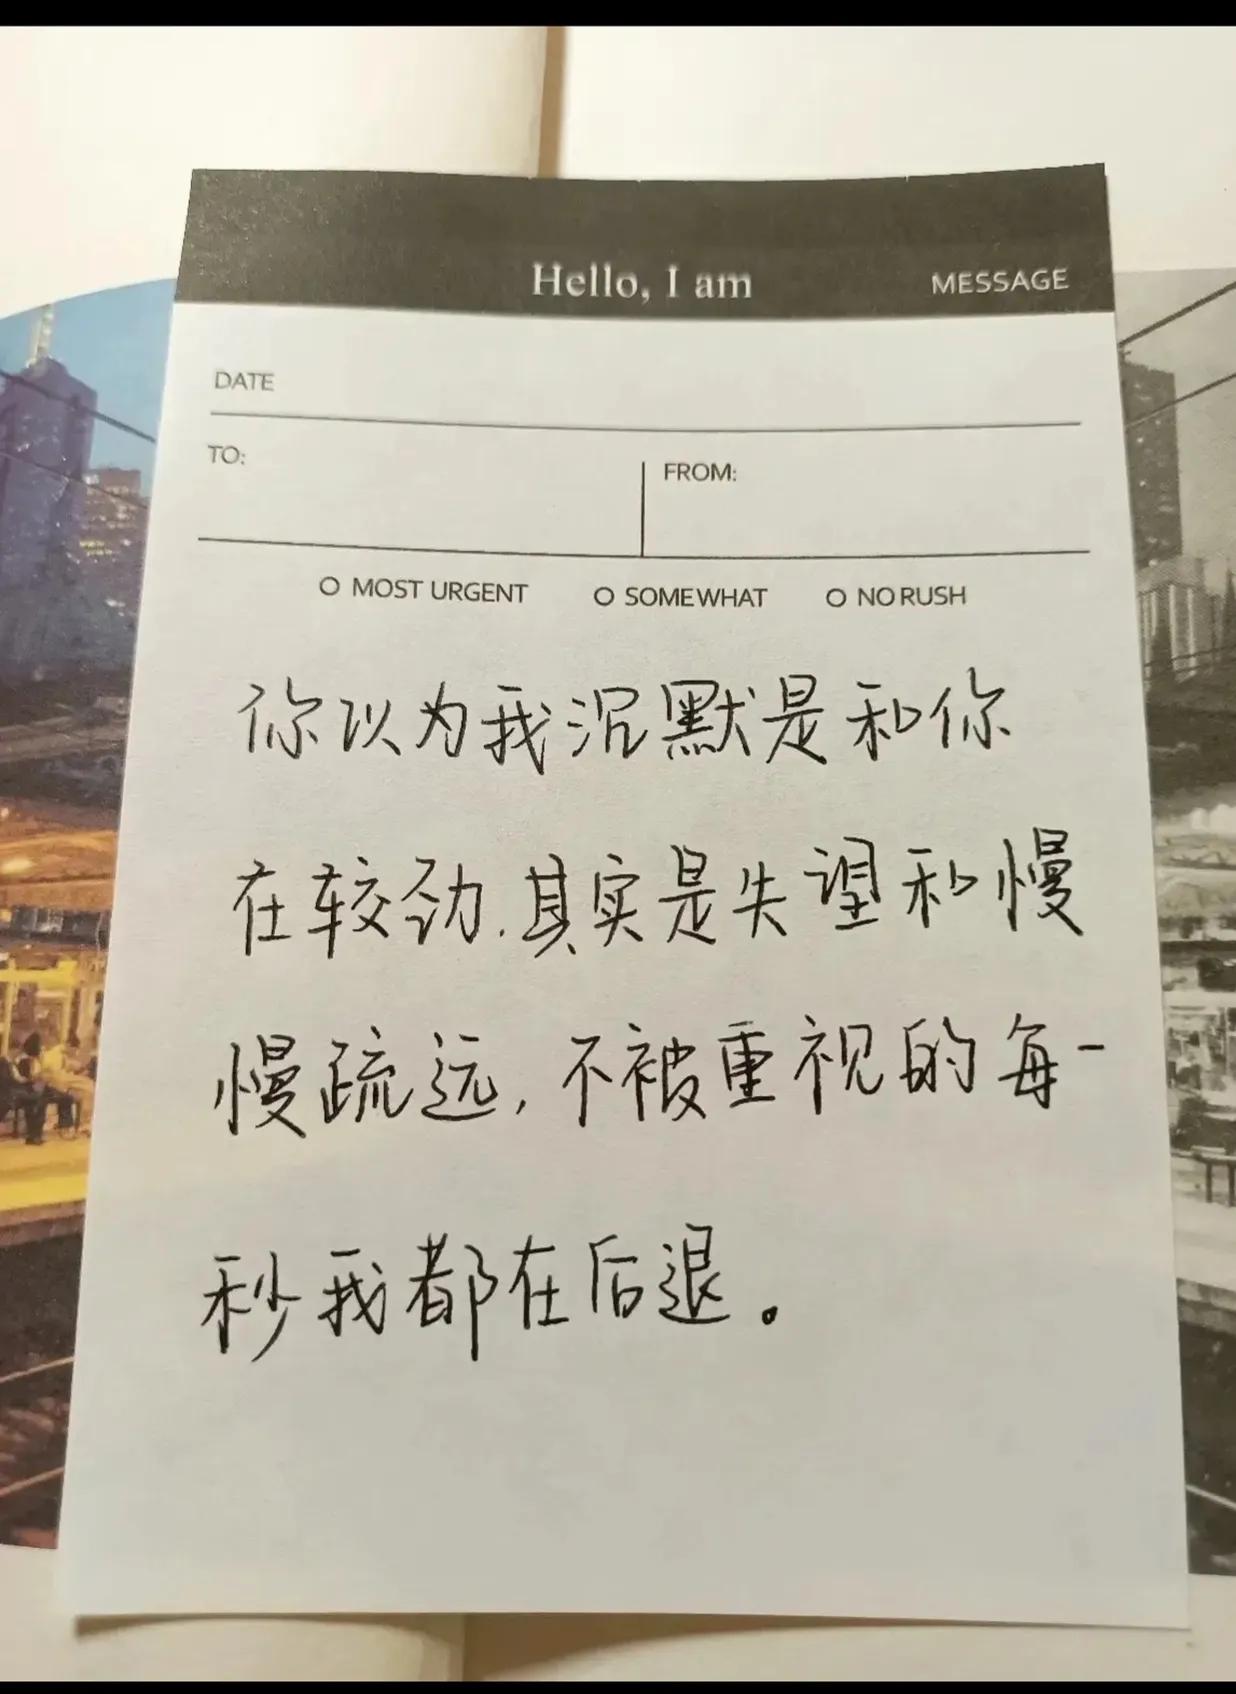 Hello, I am MESSAGE
DATE
TO: FROM:
O MOST URGENT O SOMEWHAT O NO RUSH
你以为我沉默是和你
在较劲.其实是失望和慢
慢疏远,不被重视的每一
秒我都在后退。